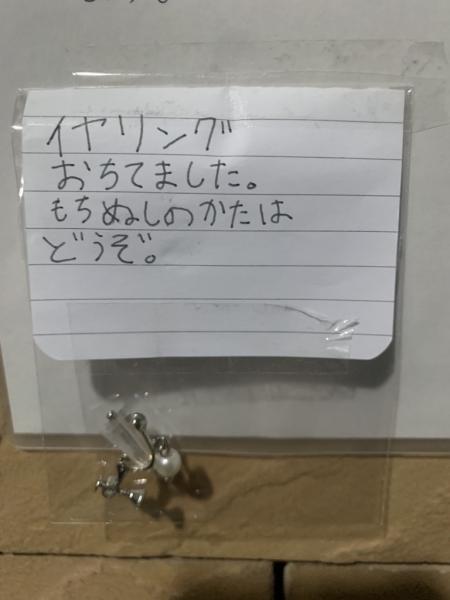 イヤリング
おちてました。
もちぬしのかたは
どうぞ。